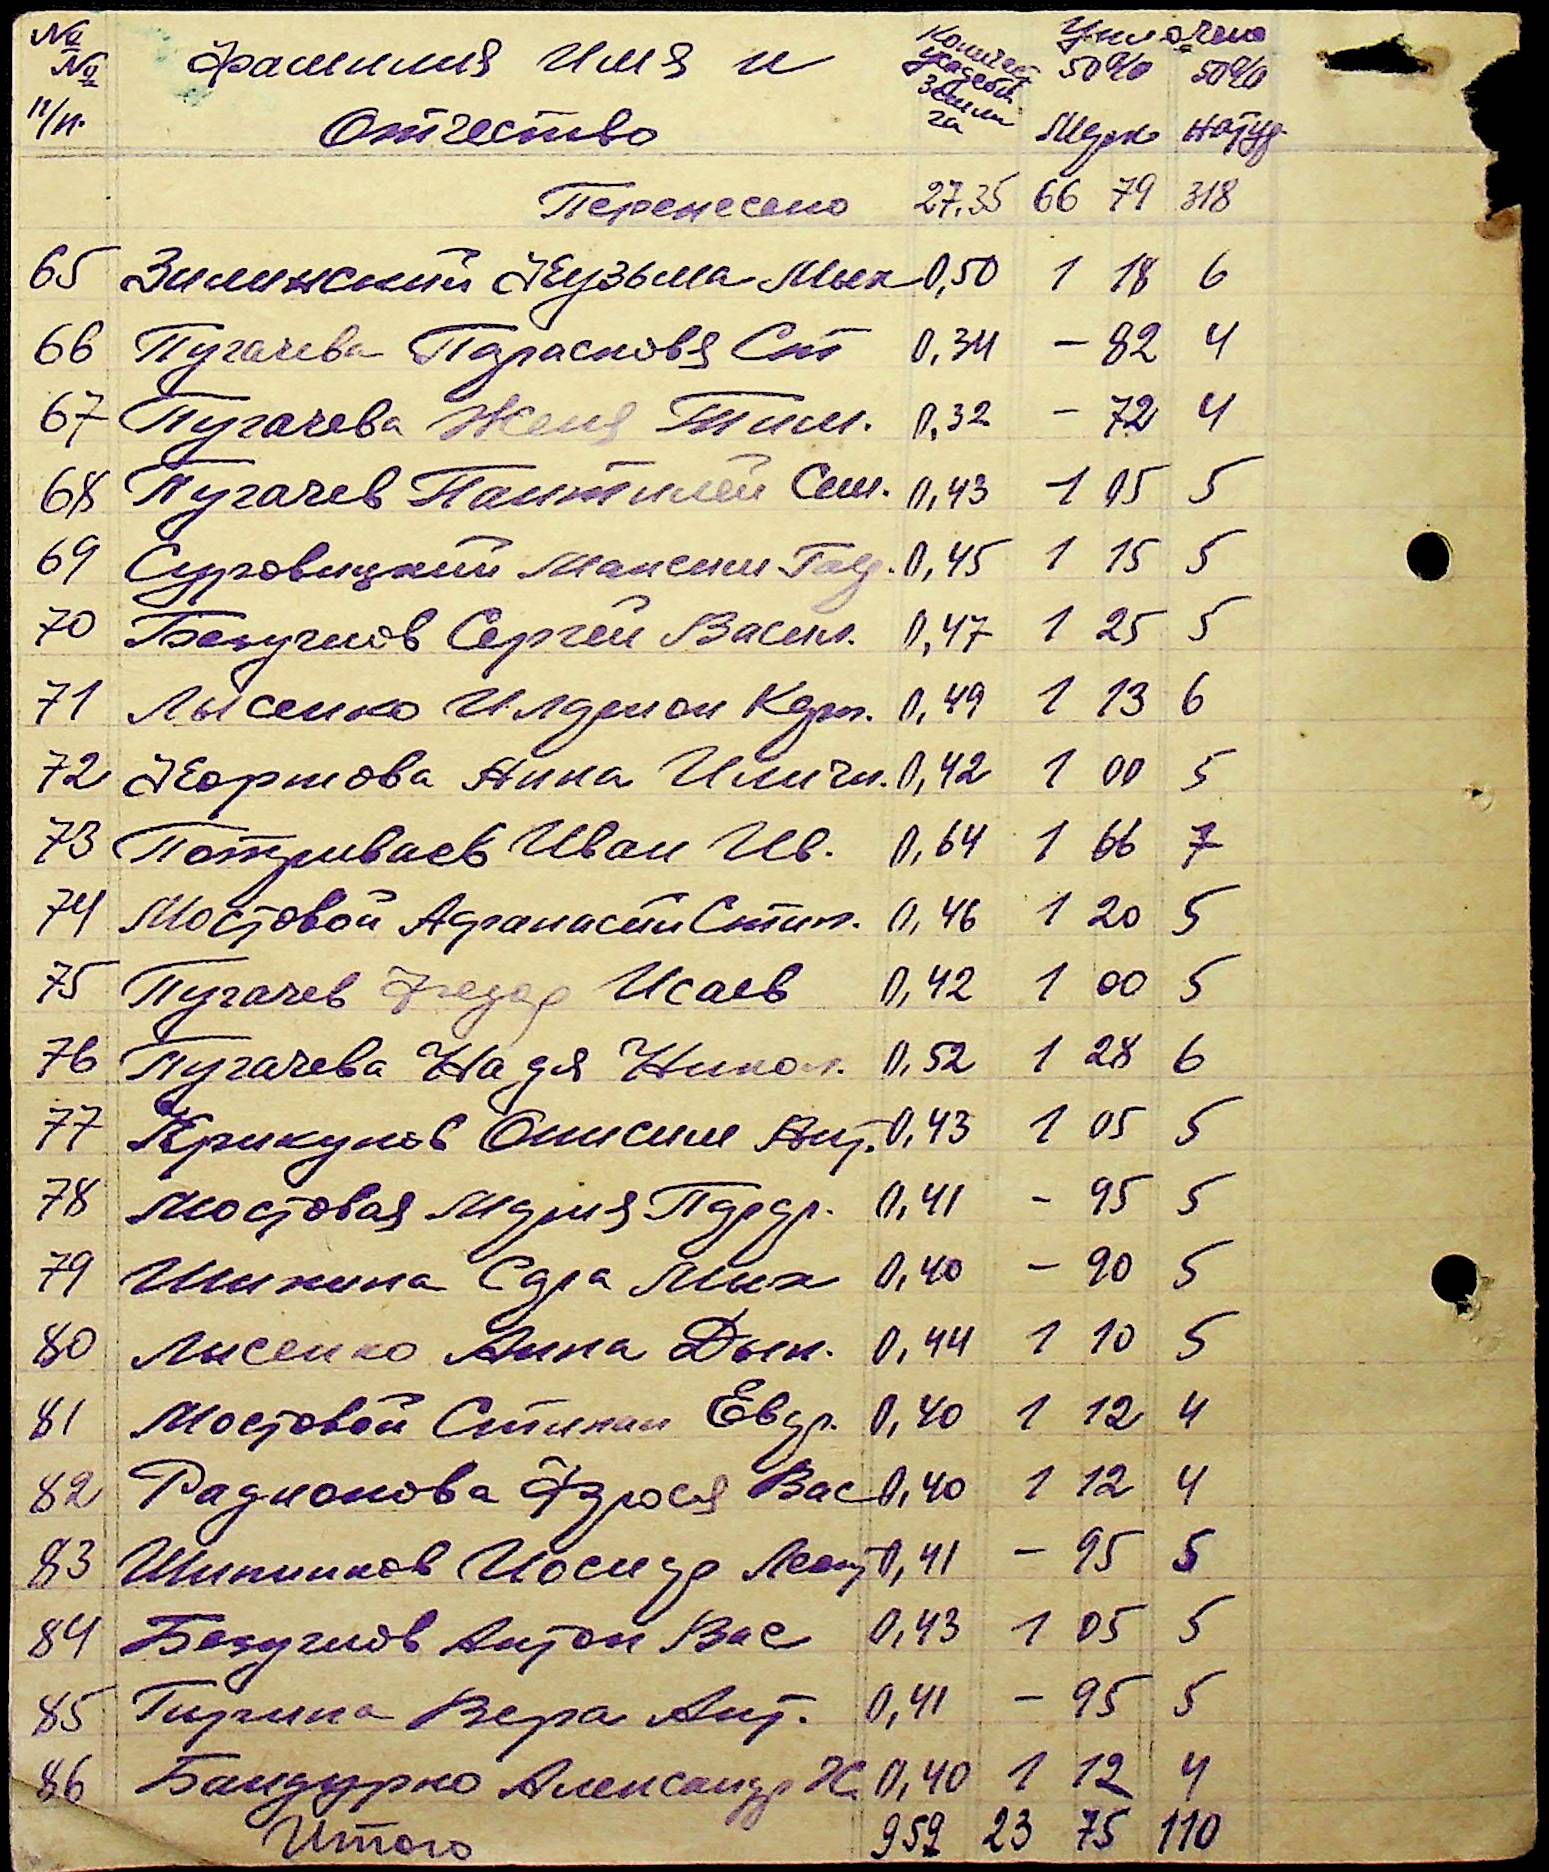 № Фамилия Имя и Количест Уплочено
№ усадебн. 50% 50%
п/п. Отчество земли га Марк натур
Перенесено 27,35 66 79 318
65 Зилинский Кузьма Мих 0,50 1 18 6
66 Пугачева Парасковя Ст 0,34 – 82 4
67 Пугачева Женя Тим. 0,32 – 72 4
68 Пугачев Пантилей Сем. 0,43 1 05 5
69 Суровицкий Максим Гав. 0,45 1 15 5
70 Безуглов Сергей Васил. 0,47 1 25 5
71 Лысенко Иларион Карп. 0,49 1 13 6
72 Кортова Нина Иличн. 0,42 1 00 5
73 Потриваев Иван Ив. 0,64 1 66 7
74 Мостовой Афанасий Стип. 0,46 1 20 5
75 Пугачев Федор Исаев 0,42 1 00 5
76 Пугачева Надя Никол. 0,52 1 28 6
77 Крикунов Онисим Ант. 0,43 1 05 5
78 Мостовая Мария Парф. 0,41 – 95 5
79 Шикина Сара Мих 0,40 – 90 5
80 Лисенко Анна Дем. 0,44 1 10 5
81 Мостовой Стипан Евдр. 0,40 1 12 4
82 Радионова Фрося Вас 0,40 1 12 4
83 Шипшков Иосиф Леонт 0,41 – 95 5
84 Безуглов Антон Вас 0,43 1 05 5
85 Гирина Вера Ант. 0,41 – 95 5
86 Бандурко Александр 0,40 1 12 4
Итого 952 23 75 110